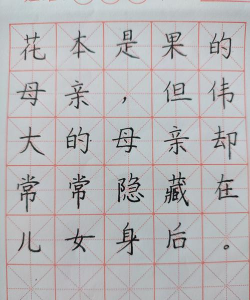 花本是果的
母亲，但伟
大的母亲却
常常隐藏在
儿女身后。